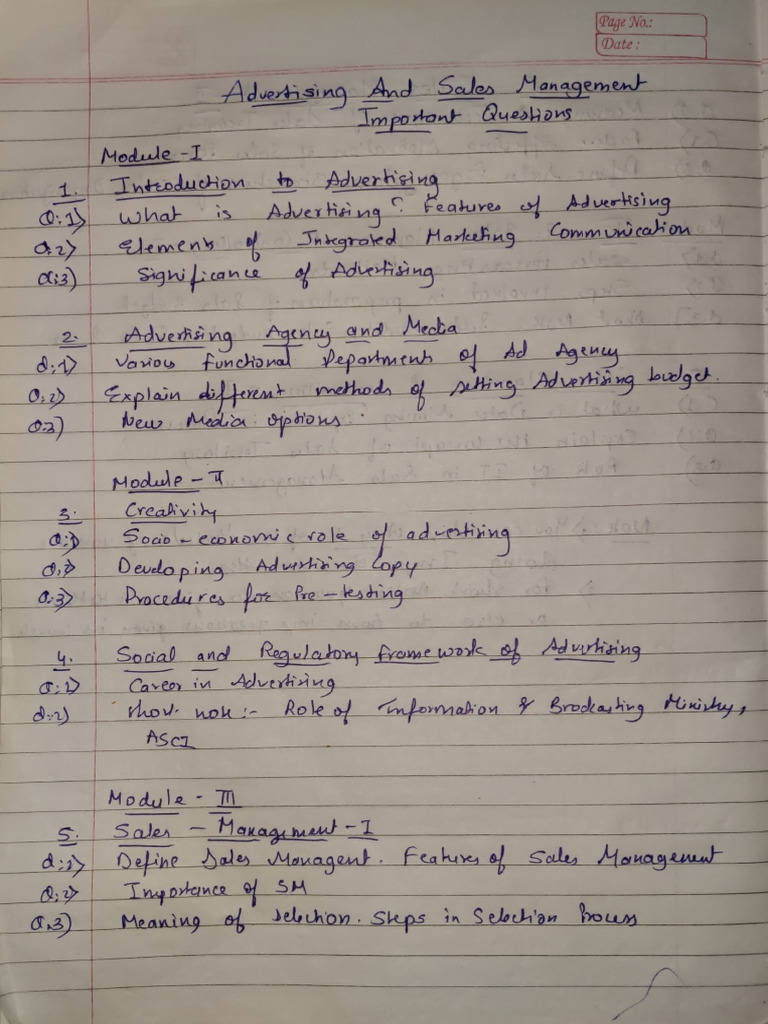 Page No.:
Date :
Advertising And Sales Management
Important Questions
Module - I
1. Introduction to Advertising
Q:1) What is Advertising? Features of Advertising
Q.2) Elements of Integrated Marketing Communication
Q:3) Significance of Advertising
2. Advertising Agency and Media
Q:1) Various functional Departments of Ad Agency
Q:2) Explain different methods of setting Advertising budget.
Q.3) New Media options.
Module - II
3. Creativity
Q:1) Socio-economic role of advertising
Q.2) Developing Advertising Copy
Q:3) Procedures for Pre-testing
4. Social and Regulatory framework of Advertising
Q:1) Career in Advertising
Q:2) Short note :- Role of Information & Brodcasting Ministry,
ASCI
Module - III
5. Sales - Management - I
Q:1) Define Sales Managent. Features of Sales Management
Q:2) Importance of SM
Q.3) Meaning of selection. Steps in Selection Process